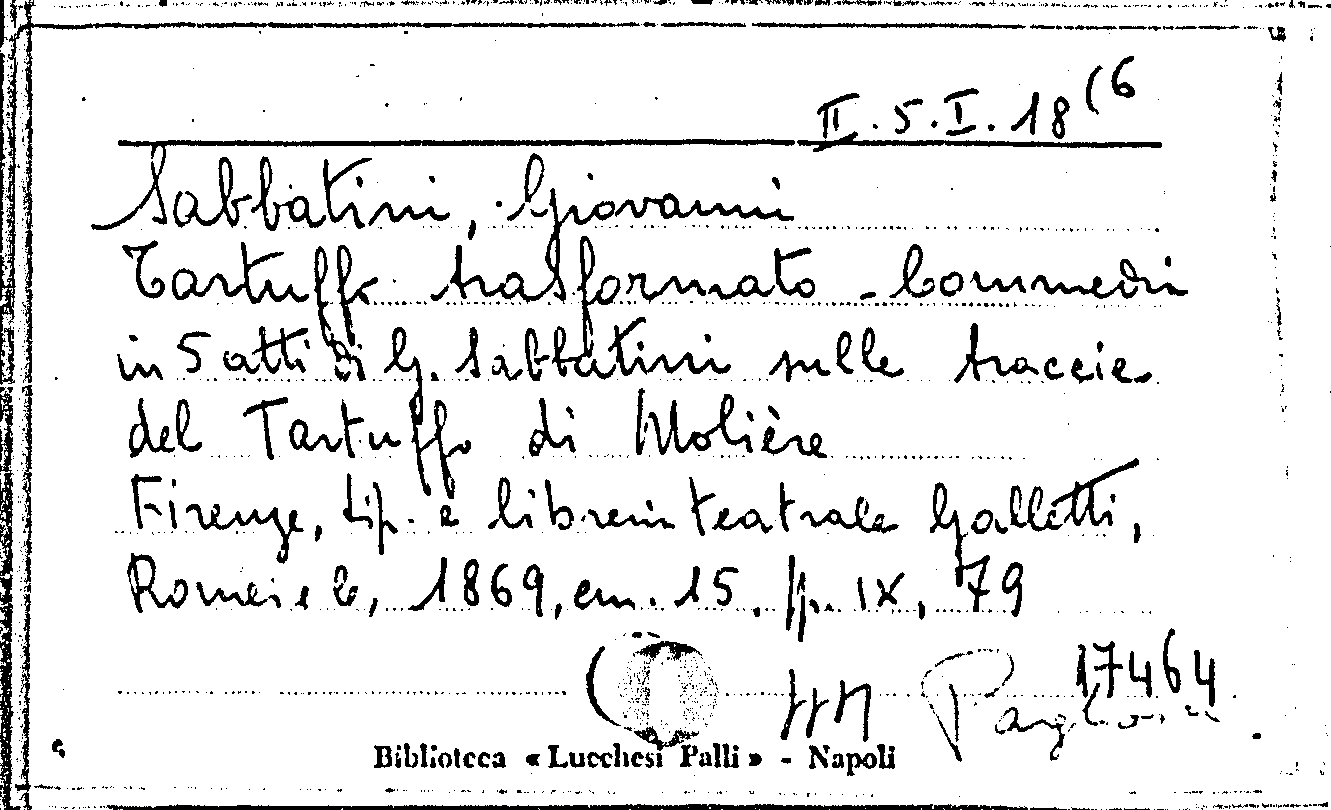 II.5.I.18(6
Sabbatini, Giovanni
Tartuffo trasformato - Commedia
in 5 atti di G. Sabbatini sulle traccie
del Tartuffo di Molière
Firenze, tip. e libreria teatrale Galletti,
Romei e C., 1869, cm. 15. pp. IX, 79
17464
Biblioteca « Lucchesi Palli » - Napoli